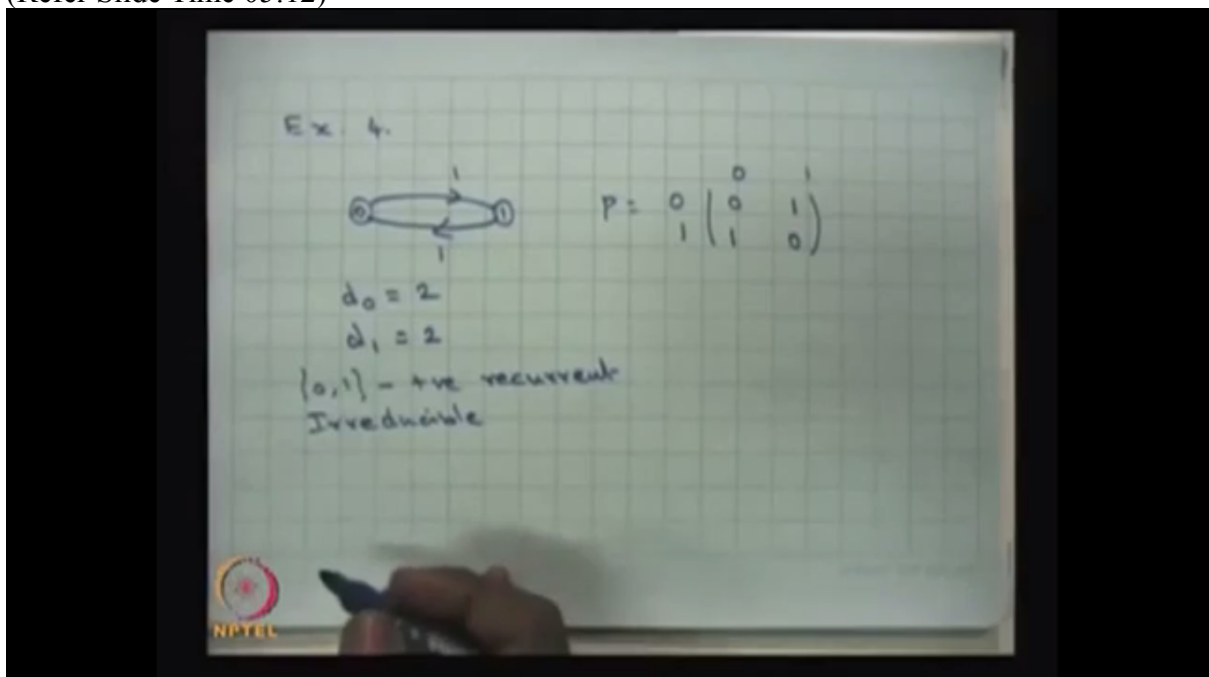 (Refer Slide Time 05:12)
Ex. 4.
1
0 1
1
P =
0 1
0 ( 0 1 )
1 ( 1 0 )
d₀ = 2
d₁ = 2
{0,1} - +ve recurrent
Irreducible
NPTEL